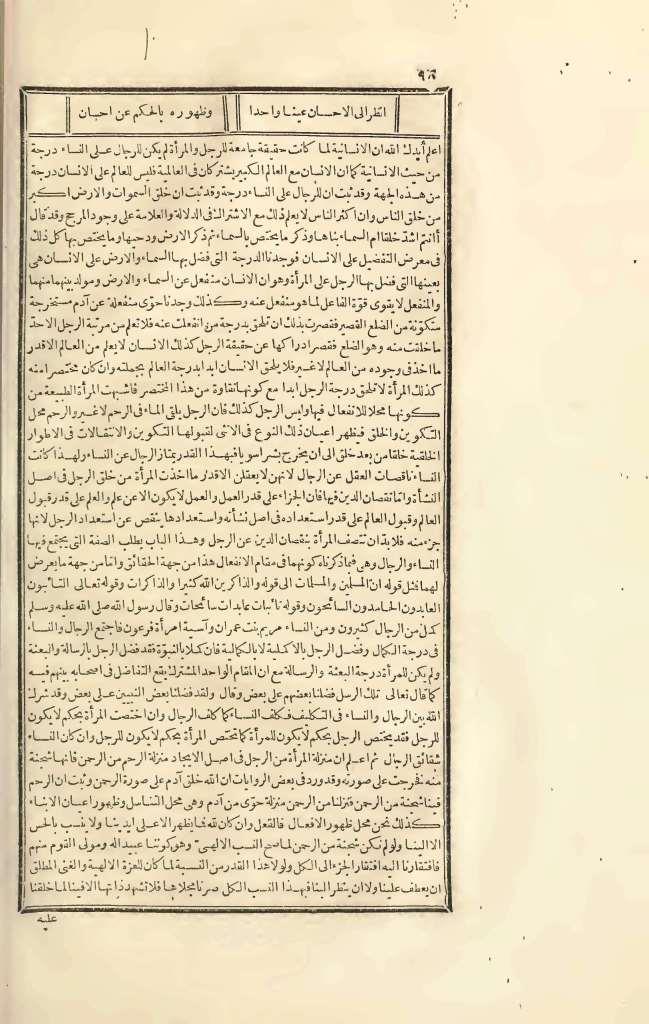 ٩٨
انظر الى الاحسان عينا واحدا وظهوره بالحكم عن احيان
اعلم أيدك الله ان الانسانية لما كانت حقيقة جامعة للرجل والمرأة لم يكن للرجال على النساء درجة
من حيث الانسانية كما ان الانسان مع العالم الكبير يشتركان فى العالمية فليس للعالم على الانسان درجة
من هذه الجهة وقد ثبت ان للرجال على النساء درجة وقد ثبت ان خلق السموات والارض اكبر
من خلق الناس وان اكثر الناس لا يعلم ذلك مع الاشتراك فى الدلالة والعلامة على وجود المرجح وقد قال
أانتم اشد خلقا ام السماء بناها وذكر ما يختص بالسماء ثم ذكر الارض ودحيها وما يختص بها كل ذلك
فى معرض التفضيل على الانسان فوجدنا الدرجة التى فضل بها السماء والارض على الانسان هى
بعينها التى فضل بها الرجل على المرأة وهو ان الانسان منفعل عن السماء والارض ومولد بينهما منهما
والمنفعل لا يقوى قوة الفاعل لما هو منفعل عنه وكذلك وجدنا حوى منفعلة عن آدم مستخرجة
متكونة من الضلع القصير فقصرت بذلك ان تلحق بدرجة من انفعلت عنه فلا تعلم من مرتبة الرجل الا حد
ما خلقت منه وهو الضلع فقصر ادراكها عن حقيقة الرجل كذلك الانسان لا يعلم من العالم الا قدر
ما اخذ فى وجوده من العالم لا غير فلا يلحق الانسان ابدا بدرجة العالم بجملته وان كان مختصرا منه
كذلك المرأة لا تلحق درجة الرجل ابدا مع كونها نقاوة من هذا المختصر فاشبهت المرأة الطبيعة من
كونها محلا للانفعال فيها وليس الرجل كذلك فان الرجل يلقى الماء فى الرحم لا غير والرحم محل
التكوين والخلق فيظهر اعيان ذلك النوع فى الانثى لقبولها التكوين والانتقالات فى الاطوار
الخلقية خلقا من بعد خلق الى ان يخرج بشرا سويا فبهذا القدر يمتاز الرجال عن النساء ولهذا كانت
النساء ناقصات العقل عن الرجال لانهن لا يعقلن الا قدر ما اخذت المرأة من خلق الرجل فى اصل
النشأة واما نقصان الدين فيها فان الجزاء على قدر العمل والعمل لا يكون الا عن علم والعلم على قدر قبول
العالم وقبول العالم على قدر استعداده فى اصل نشأته واستعدادها ينقص عن استعداد الرجل لانها
جزء منه فلا بد ان تتصف المرأة بنقصان الدين عن الرجل وهذا الباب يطلب الصفة التى يجتمع فيها
النساء والرجال وهى فيما ذكرناه كونهما فى مقام الانفعال هذا من جهة الحقائق واما من جهة ما يعرض
لهما فمثل قوله ان المسلمين والمسلمات الى قوله والذاكرين الله كثيرا والذاكرات وقوله تعالى التائبون
العابدون الحامدون السائحون وقوله تائبات عابدات سائحات وقال رسول الله صلى الله عليه وسلم
كمل من الرجال كثيرون ومن النساء مريم بنت عمران وآسية امرأة فرعون فاجتمع الرجال والنساء
فى درجة الكمال وفضل الرجل بالاكملية لا بالكمالية فان كملا بالنبوة فقد فضل الرجل بالرسالة والبعثة
ولم يكن للمرأة درجة البعثة والرسالة مع ان المقام الواحد المشترك يقع التفاضل فى اصحابه بينهم فيه
كما قال تعالى تلك الرسل فضلنا بعضهم على بعض وقال ولقد فضلنا بعض النبيين على بعض وقد شرك
الله بين الرجال والنساء فى التكليف فكلف النساء كما كلف الرجال وان اختصت المرأة بحكم لا يكون
للرجل فقد يختص الرجل بحكم لا يكون للمرأة كما تختص المرأة بحكم لا يكون للرجل وان كان النساء
شقائق الرجال ثم اعلم ان منزلة المرأة من الرجل فى اصل الايجاد منزلة الرحم من الرحمن فانها شجنة
منه فخرجت على صورته وقد ورد فى بعض الروايات ان الله خلق آدم على صورة الرحمن وثبت ان الرحم
فينا شجنة من الرحمن فنزلنا من الرحمن منزلة حوى من آدم وهى محل التناسل وظهور اعيان الابناء
كذلك نحن محل ظهور الافعال فالفعل وان كان لله فما يظهر الا على ايدينا ولا ينسب بالحس
الا الينا ولو لم نكن شجنة من الرحمن لما صح النسب الالهى وهو كوننا عبيدا له ومولى القوم منهم
فافتقارنا اليه افتقار الجزء الى الكل ولولا هذا القدر من النسبة لما كان للعزة الالهية والغنى المطلق
ان يعطف علينا ولا ان ينظر الينا فبهذا النسب الكل صرنا مجلاها فلا تشهد ذاتها الا فينا لما خلقنا
عليه